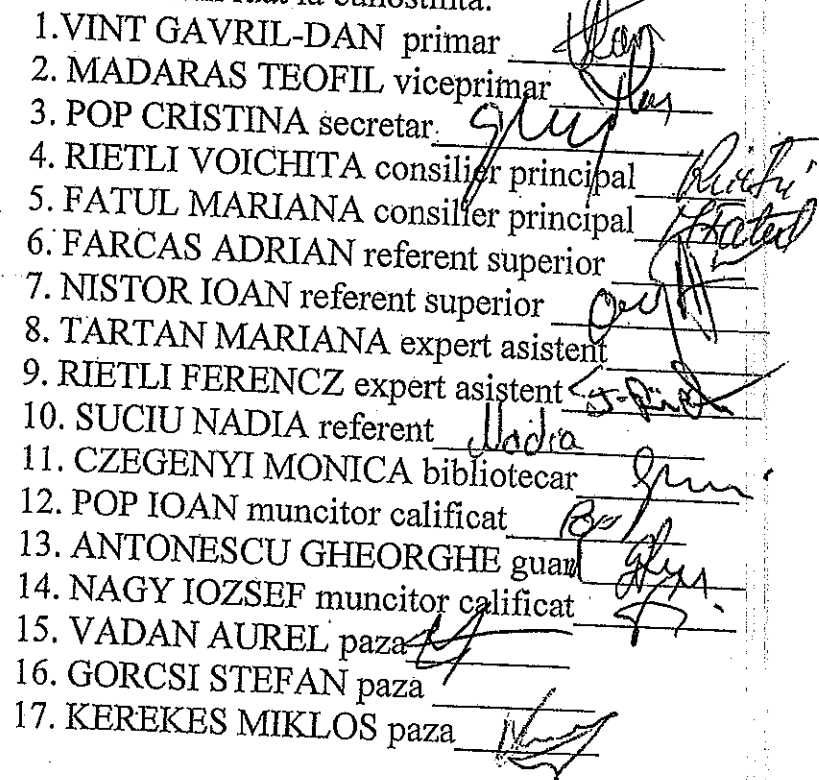 la cunostinta.
1.VINT GAVRIL-DAN primar
2. MADARAS TEOFIL viceprimar
3. POP CRISTINA secretar
4. RIETLI VOICHITA consilier principal
5. FATUL MARIANA consilier principal
6. FARCAS ADRIAN referent superior
7. NISTOR IOAN referent superior
8. TARTAN MARIANA expert asistent
9. RIETLI FERENCZ expert asistent
10. SUCIU NADIA referent Nadia
11. CZEGENYI MONICA bibliotecar
12. POP IOAN muncitor calificat
13. ANTONESCU GHEORGHE guard
14. NAGY IOZSEF muncitor calificat
15. VADAN AUREL paza
16. GORCSI STEFAN paza
17. KEREKES MIKLOS paza